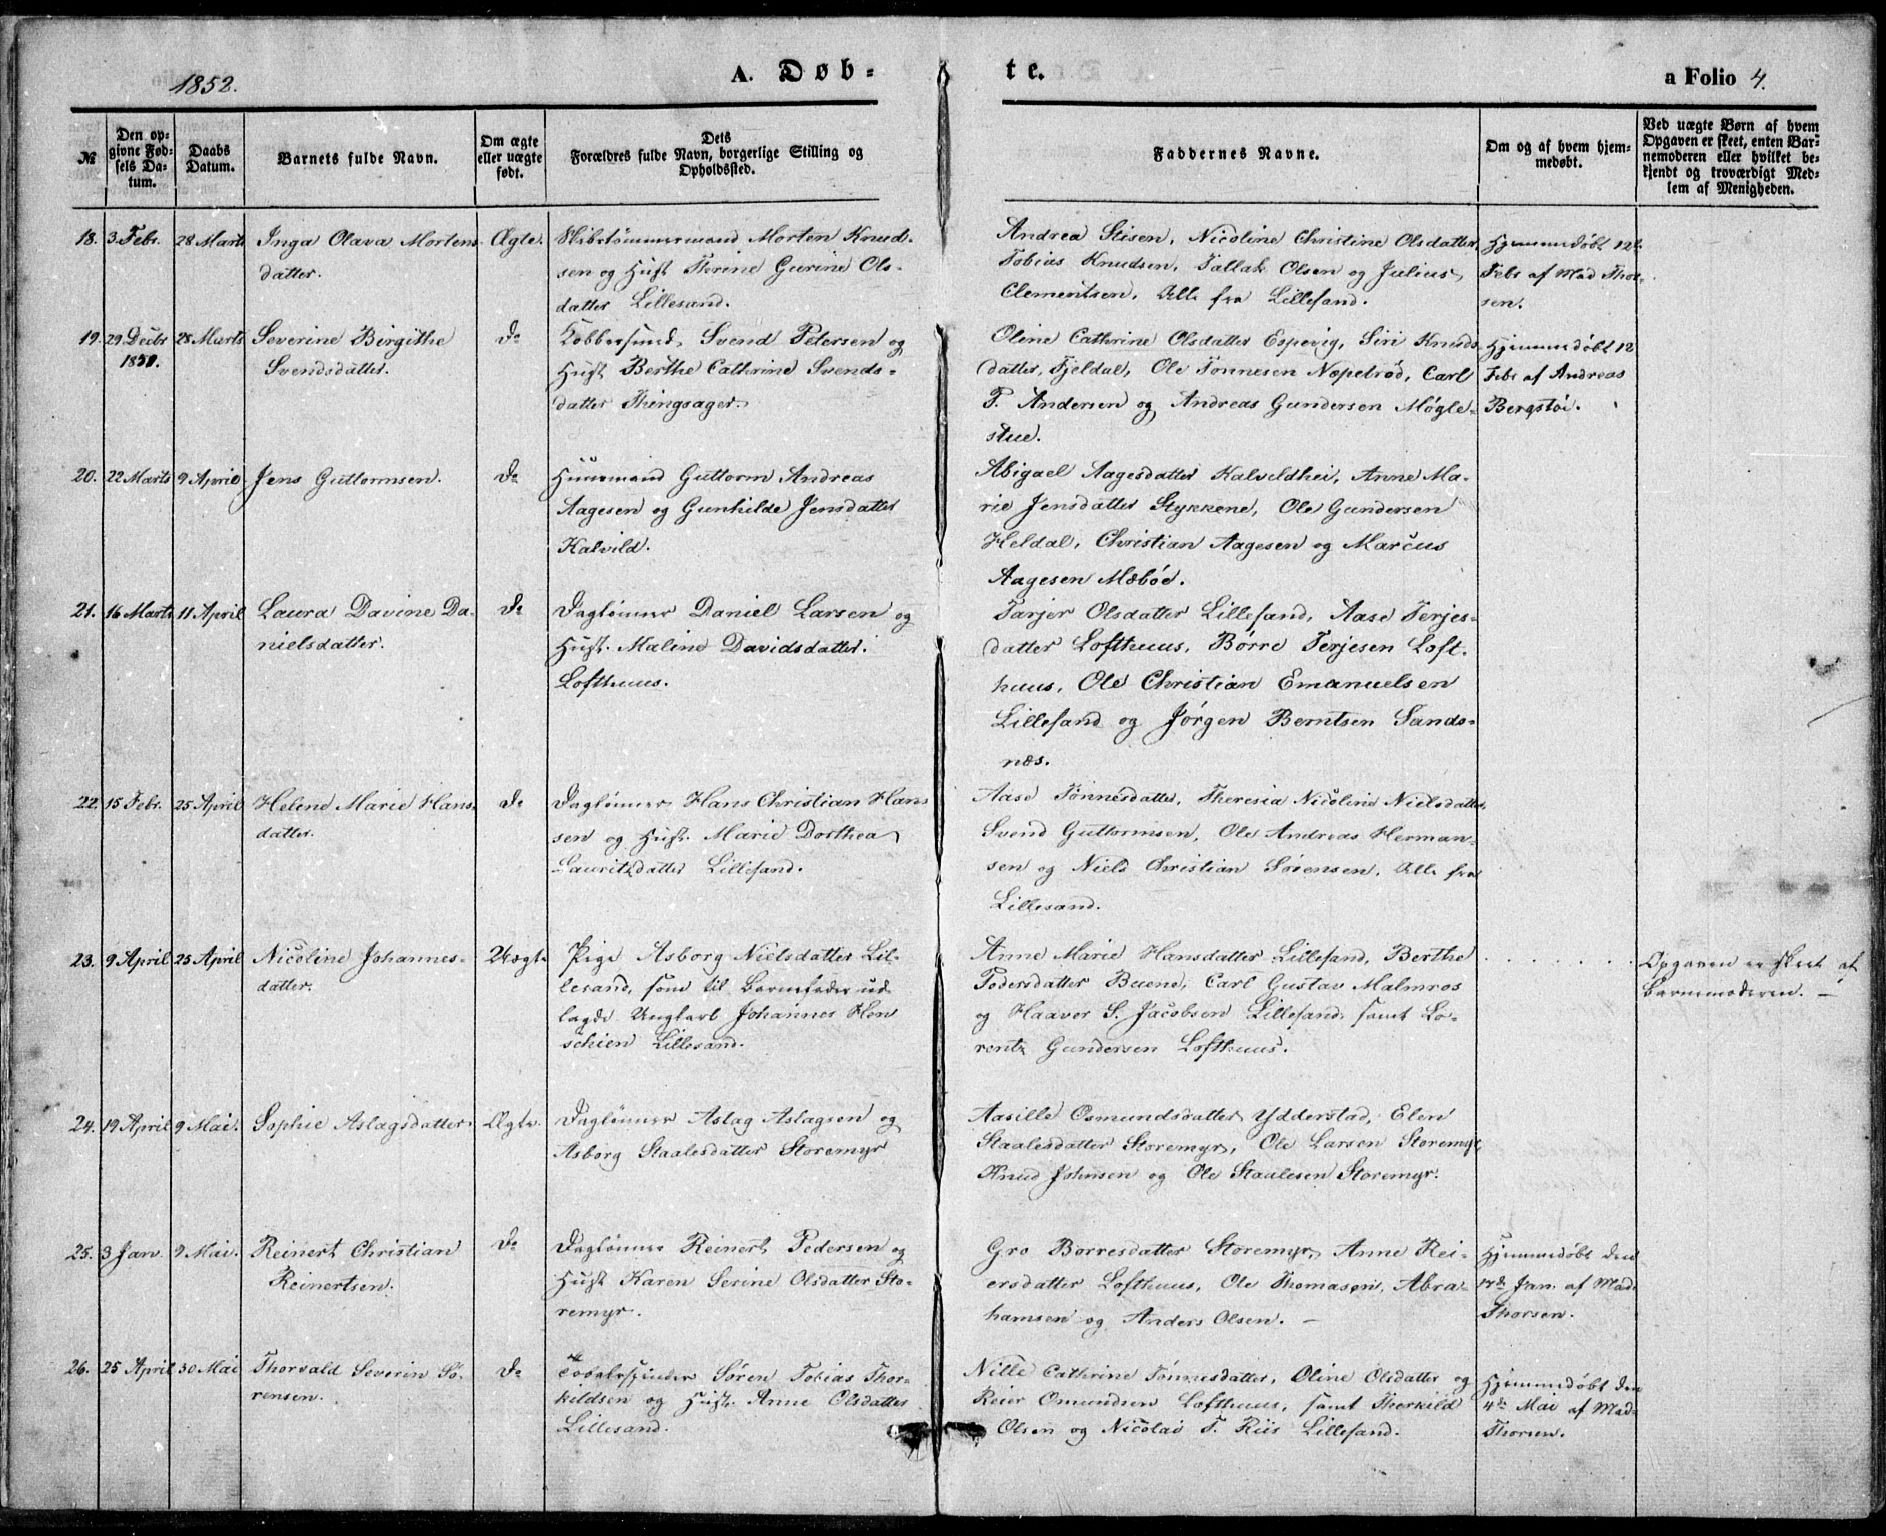 1852.
A. Døb-
te.
a Folio 4.
№
Den op-
givne Fød-
sels Da-
tum.
Daabs
Datum.
Barnets fulde Navn.
Om ægte
eller uægte
født.
Dets
Forældres fulde Navn, borgerlige Stilling og
Opholdssted.
Faddernes Navne.
Om og af hvem hjem-
medøbt.
Ved uægte Børn af hvem
Opgaven er skeet, enten Bar-
nemoderen eller hvilket be-
kjendt og troværdigt Med-
lem af Menigheden.
18. 3. Febr. 28 Marts
Inga Olava Mortens-
datter.
Ægte.
Skibstømmermand Morten Knud-
sen og Hust Terine Gurine Ols-
datter Lillesand.
Andrea Stisen, Nicoline Christine Olsdatter,
Tobias Knudsen, Tallak Olsen og Julius
Clementsen, Alle fra Lillesand.
Hjemmedøbt 12te
Febr af Mad Thor-
sen.
19. 29. Decbr 28 Marts
1851.
Severine Birgithe
Svendsdatter.
Do
Svend Petersen og
Hust Berthe Cathrine Svends-
datter Thingsager.
Oline Cathrine Olsdatter Espevig, Siri Knuds-
datter, Fjeldal, Ole Tønnesen Næpetrød, Carl
P. Andersen og Andreas Gundersen Møgle-
stue.
Hjemmedøbt 12
Febr af Andreas
Bergstøi.
20. 22 Marts 9 April
Jens Guttormsen.
Do
Huusmand Guttorm Andreas
Aagesen og Gunhilde Jensdatter
Kalvild.
Abigael Aagesdatter Kalveldhei, Anne Ma-
rie Jensdatter Stykkene, Ole Gundersen
Heldal, Christian Aagesen og Marcus
Aagesen Mæbøe.
21. 16 Marts 11 April
Laura Davine Da-
nielsdatter.
Do
Daglønner Daniel Larsen og
Hust. Maline Davidsdatter.
Lofthuus.
Tarjer Olsdatter Lillesand, Aase Terjes-
datter Lofthuus, Børre Terjesen Loft-
huus, Ole Christian Emanuelsen
Lillesand og Jørgen Berntsen Sands-
næs.
22. 15 Febr. 25 April
Helene Marie Hans-
datter.
Do
Daglønner Hans Christian Han-
sen og Hust. Marie Dorthea
Lauritzdatter Lillesand.
Aase Tønnesdatter, Theresia Nicoline Nielsdatter,
Svend Guttormsen, Ole Andreas Herman-
sen og Niels Christian Sørensen, Alle fra
Lillesand.
23. 9 April 25 April
Nicoline Johannes-
datter.
Uægte
Pige Asborg Nielsdatter Lil-
lesand, som til Barnefader ud-
lagde Ungkarl Johannes Hen
schien Lillesand.
Anne Marie Hansdatter Lillesand, Berthe
Pedersdatter Buene, Carl Gustav Malmros
og Haaver S. Jacobsen Lillesand, samt Lo-
rentz Gundersen Lofthuus.
Opgaven er skeet af
Barnemoderen. —
24. 19 April 9 Mai.
Sophie Aslagsdatter.
Ægte.
Daglønner Aslag Aslagsen og
Asborg Staalesdatter Storemyr
Aasille Osmundsdatter Ydderstad, Elen
Staalesdatter Storemyr, Ole Larsen Storemyr,
Knud Johnsen og Ole Staalesen Storemyr.
25. 3 Jan. 9 Mai.
Reinert Christian
Reinertsen.
Do
Daglønner Reinert Pedersen og
Hust Karen Serine Olsdatter Sto-
remyr.
Gro Børresdatter Storemyr, Anne Rei-
ersdatter Lofthuus, Ole Thomasøn, Abra-
hamsen og Anders Olsen. —
Hjemmedøbt den
17de Jan. af Mad.
Thorsen.
26. 25 April 30 Mai
Thorvald Severin Sø-
rensen.
Do
Tobakspinder Søren Tobias Thor-
kildsen og Hust. Anne Olsdatter
Lillesand.
Nille Cathrine Tønnesdatter, Oline Olsdatter og
Reier Omundsen Lofthuus, samt Thorkild
Olsen og Nicolai T. Riis Lillesand.
Hjemmedøbt den
4de Mai af Mad.
Thorsen.